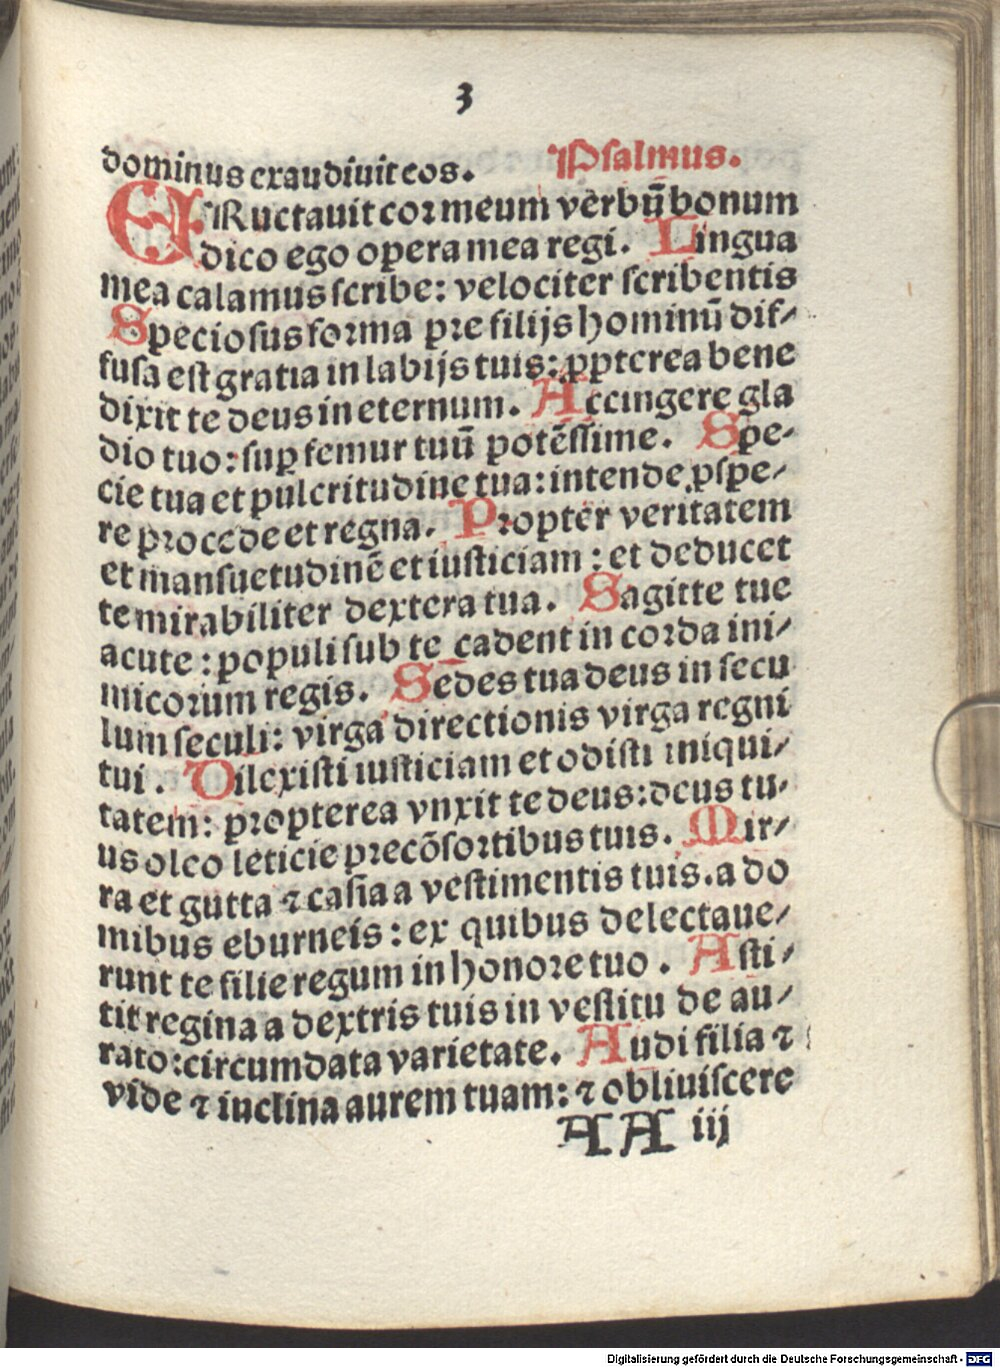 3
dominus exaudiuit eos. Psalmus.
ERuctauit cor meum verbū bonum
dico ego opera mea regi. Lingua
mea calamus scribe: velociter scribentis
Speciosus forma pre filijs hominū dif⸗
fusa est gratia in labijs tuis: ꝓpterea bene
dixit te deus in eternum. Accingere gla
dio tuo: suꝑ femur tuū potēssime. Spe⸗
cie tua et pulcritudine tua: intende ꝓspe⸗
re procede et regna. Propter veritatem
et mansuetudinē et iusticiam: et deducet
te mirabiliter dextera tua. Sagitte tue
acute: populi sub te cadent in corda ini⸗
micorum regis. Sedes tua deus in secu
lum seculi: virga directionis virga regni
tui. Dilexisti iusticiam et odisti iniqui⸗
tatem: propterea vnxit te deus: deus tu⸗
us oleo leticie pre cōsortibus tuis. Mir⸗
ra et gutta ⁊ casia a vestimentis tuis. a do
mibus eburneis: ex quibus delectaue⸗
runt te filie regum in honore tuo. Asti⸗
tit regina a dextris tuis in vestitu de au⸗
rato: circumdata varietate. Audi filia ⁊
vide ⁊ iuclina aurem tuam: ⁊ obliuiscere
AA iij
Digitalisierung gefördert durch die Deutsche Forschungsgemeinschaft - DFG